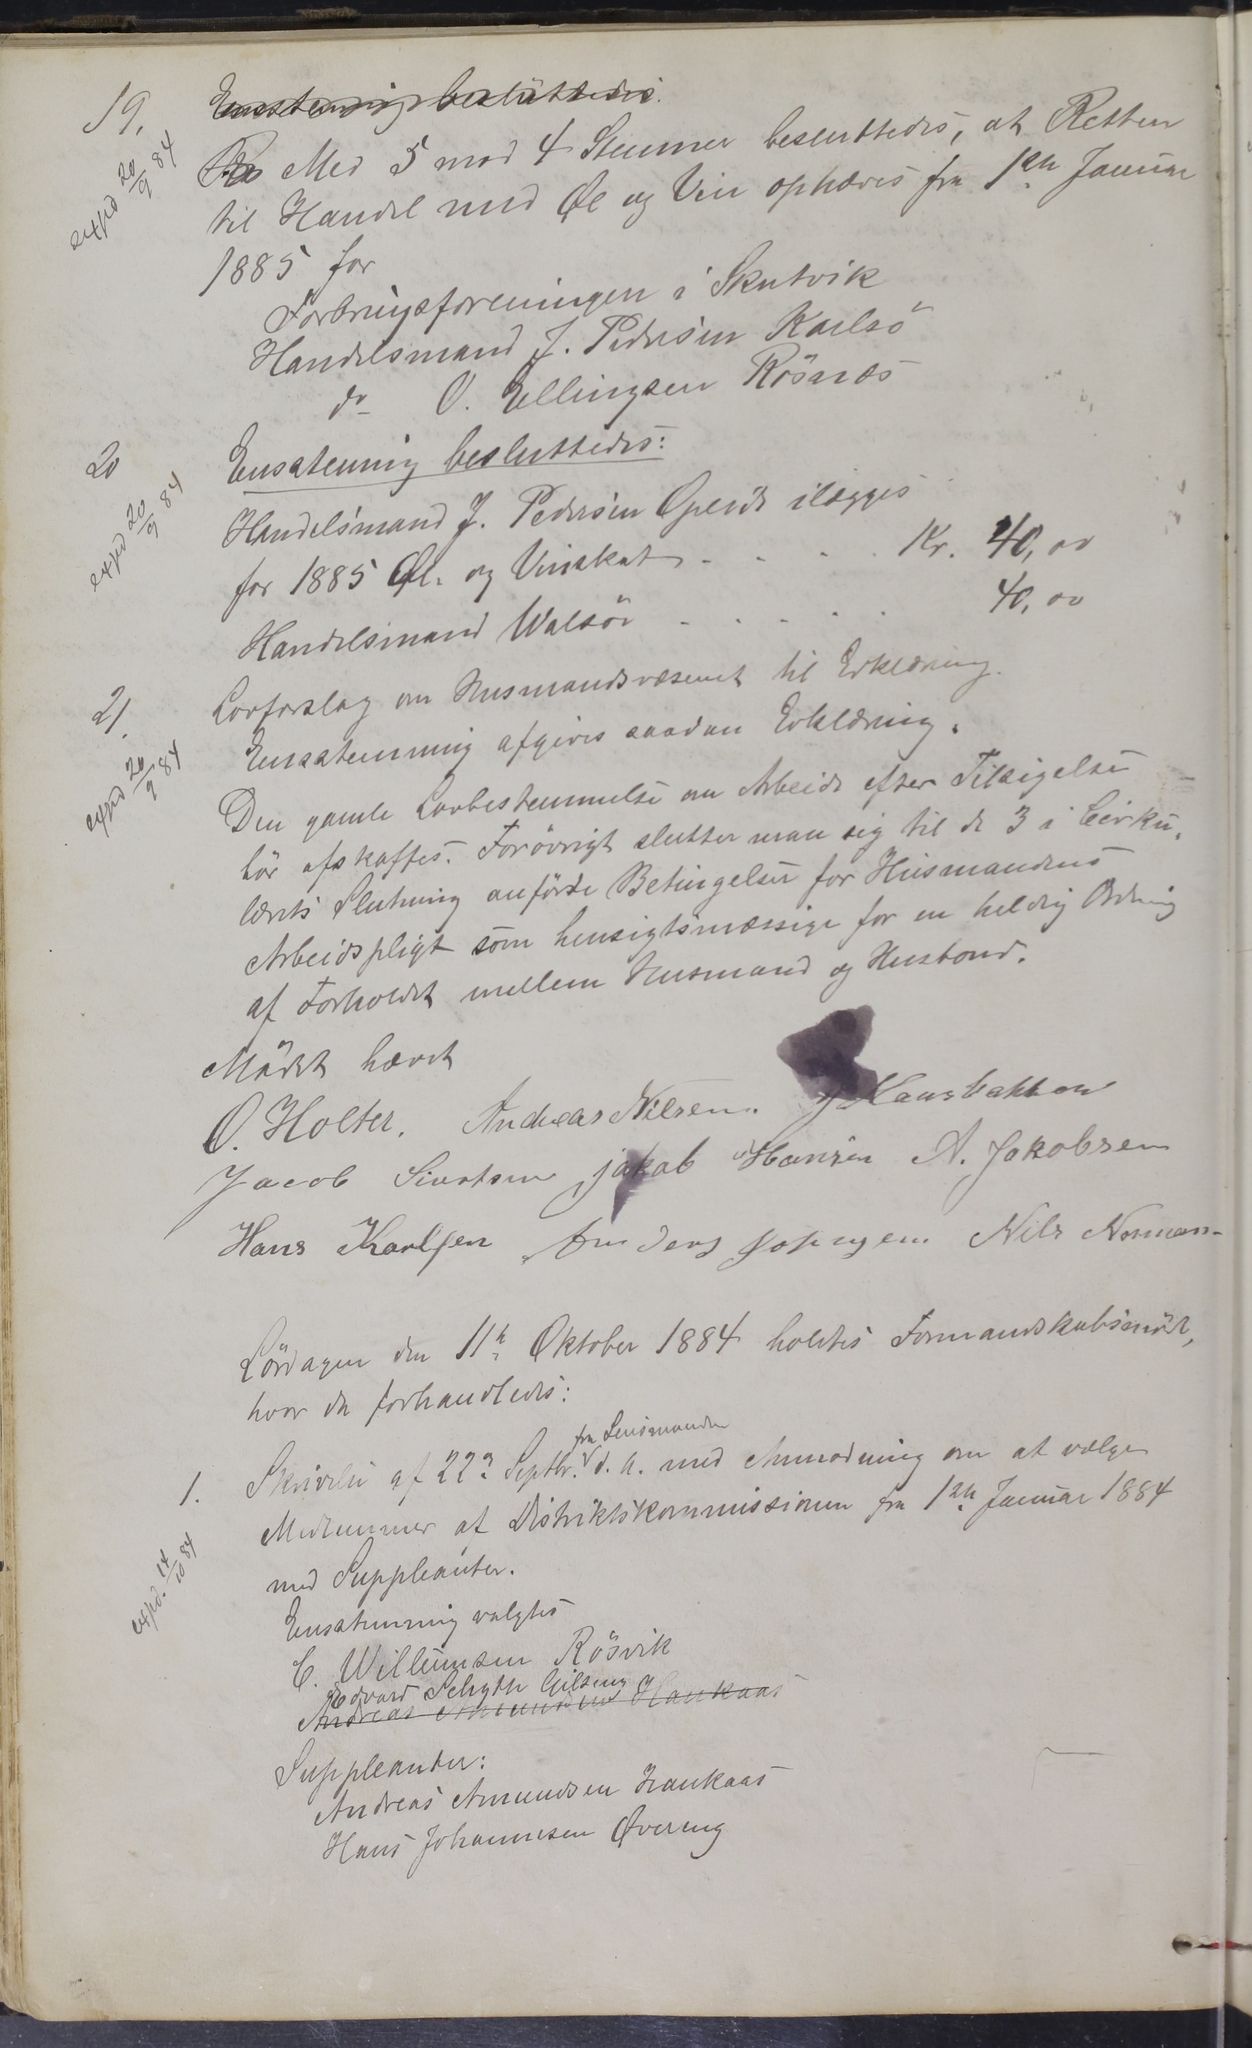 19.
Enstemmig besluttedes.
Med 5 mod 4 Stemmer besluttedes, at Retten
expd 20/9 84
til Handel med Øl og Vin ophæves fra 1ste Januar
1885 for
Forbrugsforeningen i Skutvik
Handelsmand J. Pedersen Karlsö
do O. Ellingsen Rösnæs
20
Enstemmig besluttedes:
expd 20/9 84
Handelsmand J. Pedersen ilægges
for 1885 Øl- og Vinskat . . . . Kr. 40,00
Handelsmand Walsör . . . . . 40,00
21.
Lovforslag om Husmandsvæsenet til Erklæring.
expd 20/9 84
Enstemmig afgives saadan Erklæring.
Den gamle Lovbestemmelse om Arbeide efter Tilsigelse
bör afskaffes. Forövrigt slutter man sig til de 3 i Cirku-
lærets Slutning anförte Betingelser for Husmandens
Arbeidspligt som hensigtsmæssige for en heldig Ordning
af Forholdet mellem Husmand og Husbond.
Mödet hævet
O. Holter. Andreas Nilsen. J Haugbakken
Jacob Sivertsen jakob Hansen A. Jakobsen
Hans Karlsen Anders Nils Norman-
Lördagen den 11te Oktober 1884 holdtes Formandskabsmöde,
hvor da forhandledes:
1.
fra Lensmanden
Skrivelse af 22de Septbr. d. A. med Anmodning om at vælge
Medlemmer af Distriktskommissionen fra 1ste Januar 1884
expd. 14/10 84
med Suppleanter.
Enstemmig valgtes
C. Willumsen Rösvik
Edvard Schytte
Andreas Amundsen Haukaas
Suppleanter:
Andreas Amundsen Haukaas
Hans Johannesen Øvereng